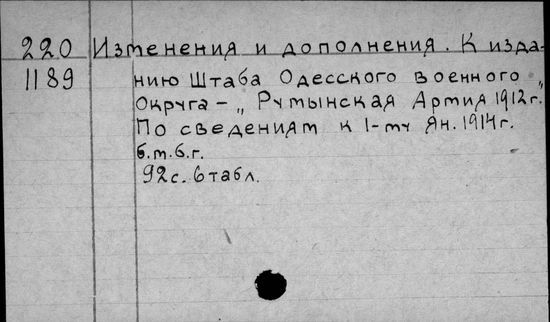 220 Изменения и дополнения. К изда-
1189 нию Штаба Одесского военного
округа – „Румынская Армия 1912 г."
По сведениям к 1-му Ян. 1914 г.
б.м.б.г.
92 с. 6 табл.